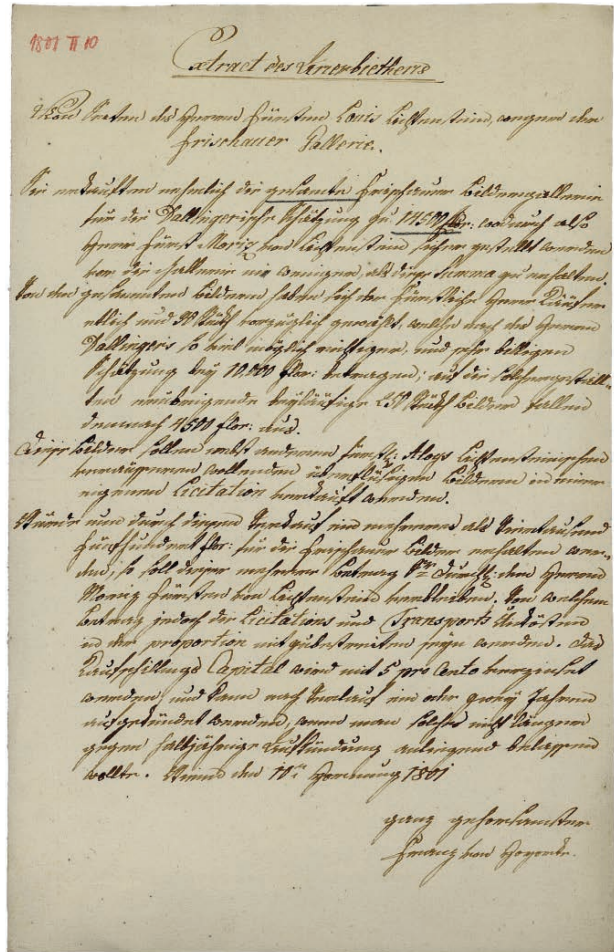 1801 II 10
Extract des Anerbiethens
Von Seiten des Herrn Fürsten Louis Lichtenstein, wegen der
Frischauer Gallerie.
Sie erkauften nehmlich die gesamte Frischauer Bildergallerie
für die Dallingerische Schätzung zu 14500 flor: wodurch also
Herr Fürst Moriz von Lichtenstein sicher gestellt werden
vor die Gallerie nie weniger, als diese Summa zu erhalten.
Von den gesammten Bildern haben sich der Fürstliche Herr Käufer
etlich und 30 Stück vorzüglich gewählt, welche nach des Herrn
Dallingers so viel möglich richtigen, und sehr billigen
Schätzung bey 10,000 flor: betragen; auf die
erübrigende beyläufige 250 Stück Bilder fallen
demnach 4500 flor: aus.
Diese Bilder sollen nebst anderen fürstl: Aloys Lichtensteinischen
veräussern wollenden überflüssigen Bildern in einer
eigenen Licitation verkauft werden.
Würde nun durch diesen Verkauf ein mehreres als Viertausend
Fünfhundert flor: für die Frischauer Bilder erhalten wer-
den, so soll dieser mehrere Betrag Sr Durchl: dem Herrn
Moriz Fürsten von Lichtenstein verbleiben. Von welchem
Betrag jedoch die Licitations und Transports Unkösten
in der proportion mitzubestreiten seyn werden. Das
Kaufschillings Capital wird mit 5 pro Cento verzinset
werden, und kann nach Verlauf ein oder zwey Jahren
aufgekündet werden, wenn man solches nicht länger
gegen halbjährige Aufkündung anliegend belassen
wollte. Wienn den 10n Hornung 1801
ganz gehorsamster
Franz von